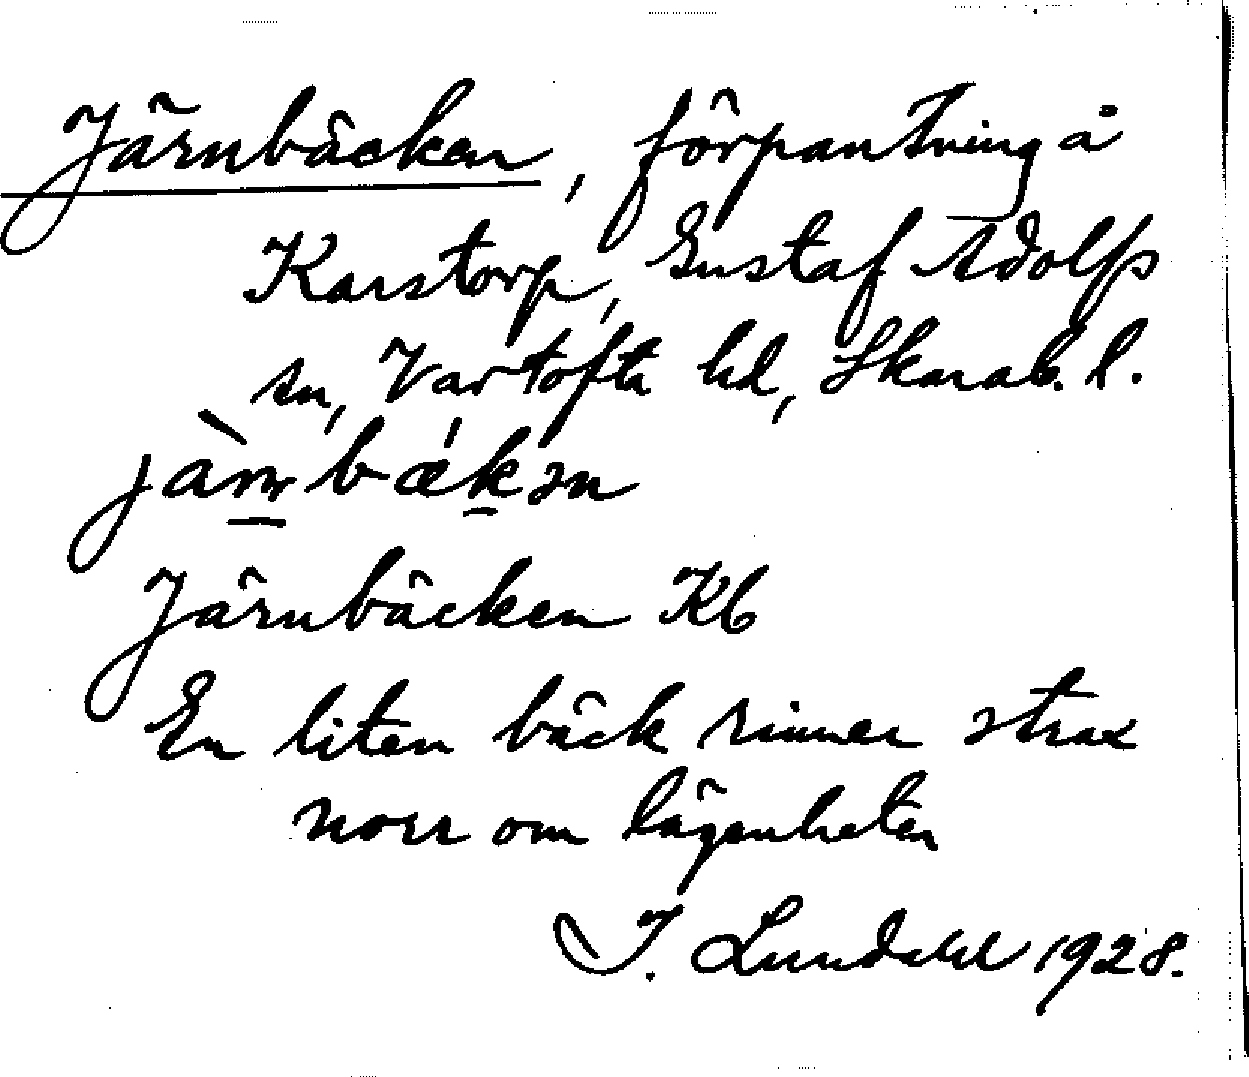 Järnbäcken, förpantning å
Karstorp, Gustaf Adolfs
sn, Vartofta hd, Skarab. l.
jàrnbækən
Järnbäcken Kb
En liten bäck rinner strax
norr om lägenheten
I. Lundahl 1928.